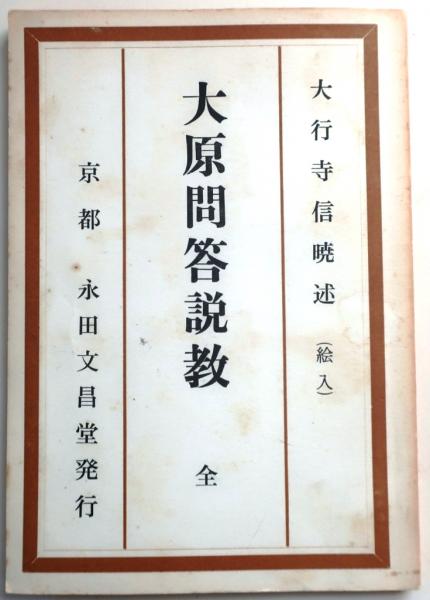 大行寺信暁述（絵入）
大原問答説教　全
京都　永田文昌堂発行